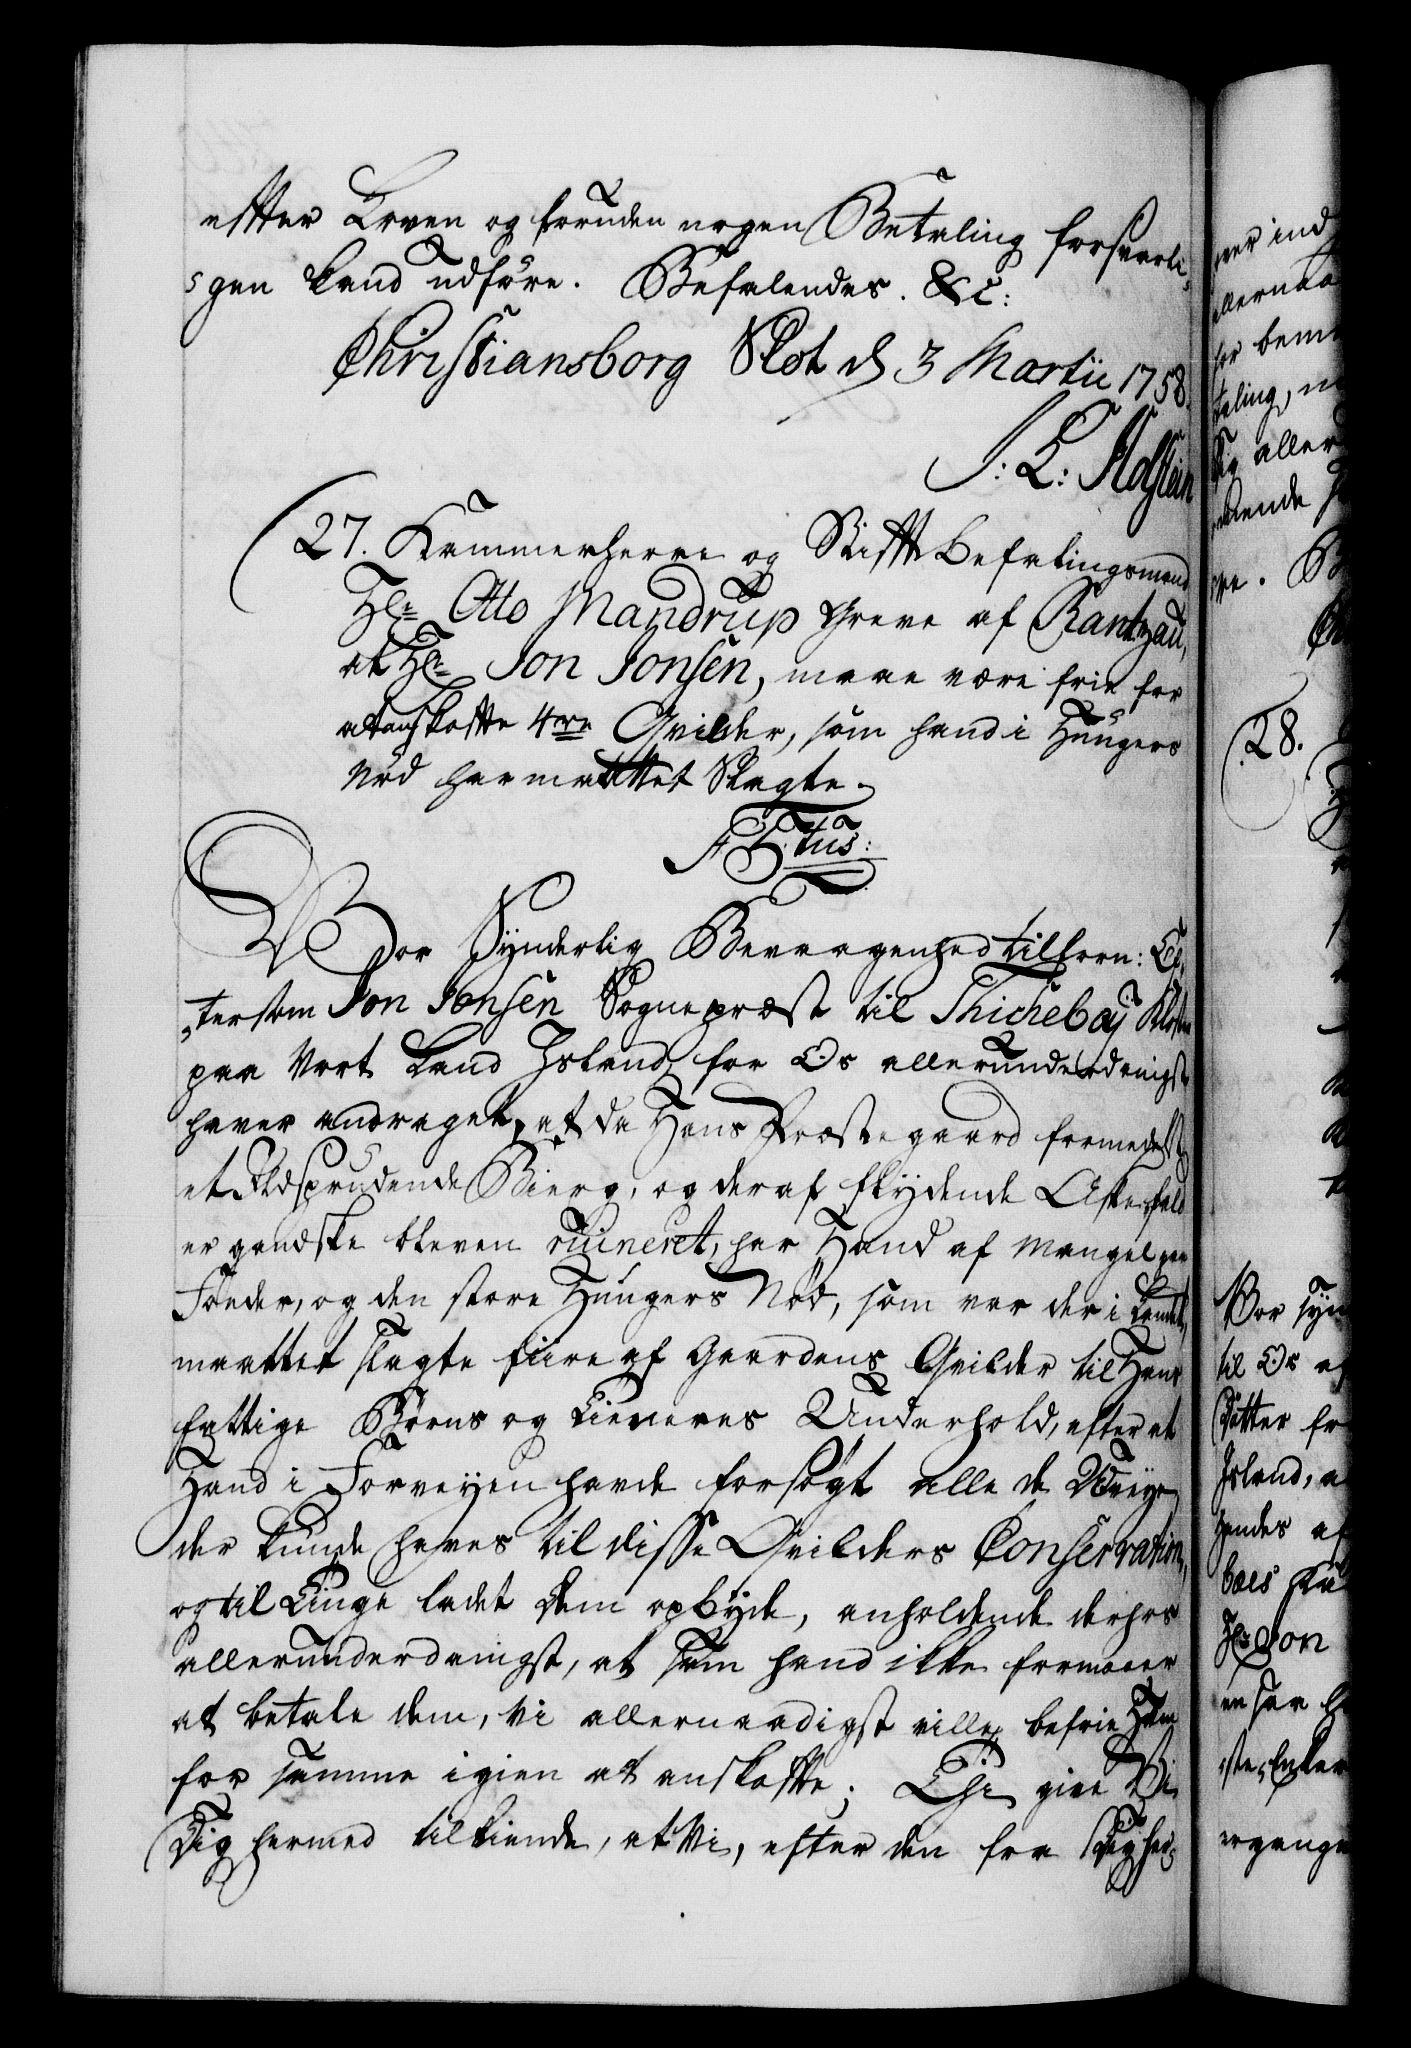 efter Loven og foruden nogen Betaling forsvarli-
gen kand udføre. Befalendes. &c:
Christiansborg Slot d 3 Martii 1758.
J: L: Holstein
27. Kammerherre og Stiftbefalingsmand
Hr Otto Mandrup Greve af Rantzau,
at Hr Jon Jonsen, maae være frie for
at anskaffe 4re Qvilder, som hand i Hungers
Nød har maattet Slagte.
Titus:
Vor Synderlig Bevaagenhed tilforn: Ef-
tersom Jon Jonsen Sognepræst til Thichebay Kloster
paa Vort Land Island, for Os allerunderdanigst
haver andraget, at da Hans Præstegaard formedelst
et Ildsprudende Bierg, og deraf flydende Aske-fald
er gandske bleven ruineret, har Hand af Mangel paa
Foeder, og den store Hungers Nød, som var der i Landet,
maattet slagte fiire af Gaardens Qvilder til Hans
fattige Børns og Tieneres Underhold, efter at
Hand i Forveyen havde forsøgt alle de Weye
der kunde haves til disse Qvilders Conservation,
og til Tinge ladet Dem opbyde, anholdende derhos
allerunderdanigst, at som hand ikke formaaer
at betale dem, Vi allernaadigst ville befrie Ham
for samme igien at anskaffe; Thi give Vi
Dig hermed tilkiende, at Vi, efter den fra Dig her-
28.
Vor Syn
til Os
Island, a
Hr Jon